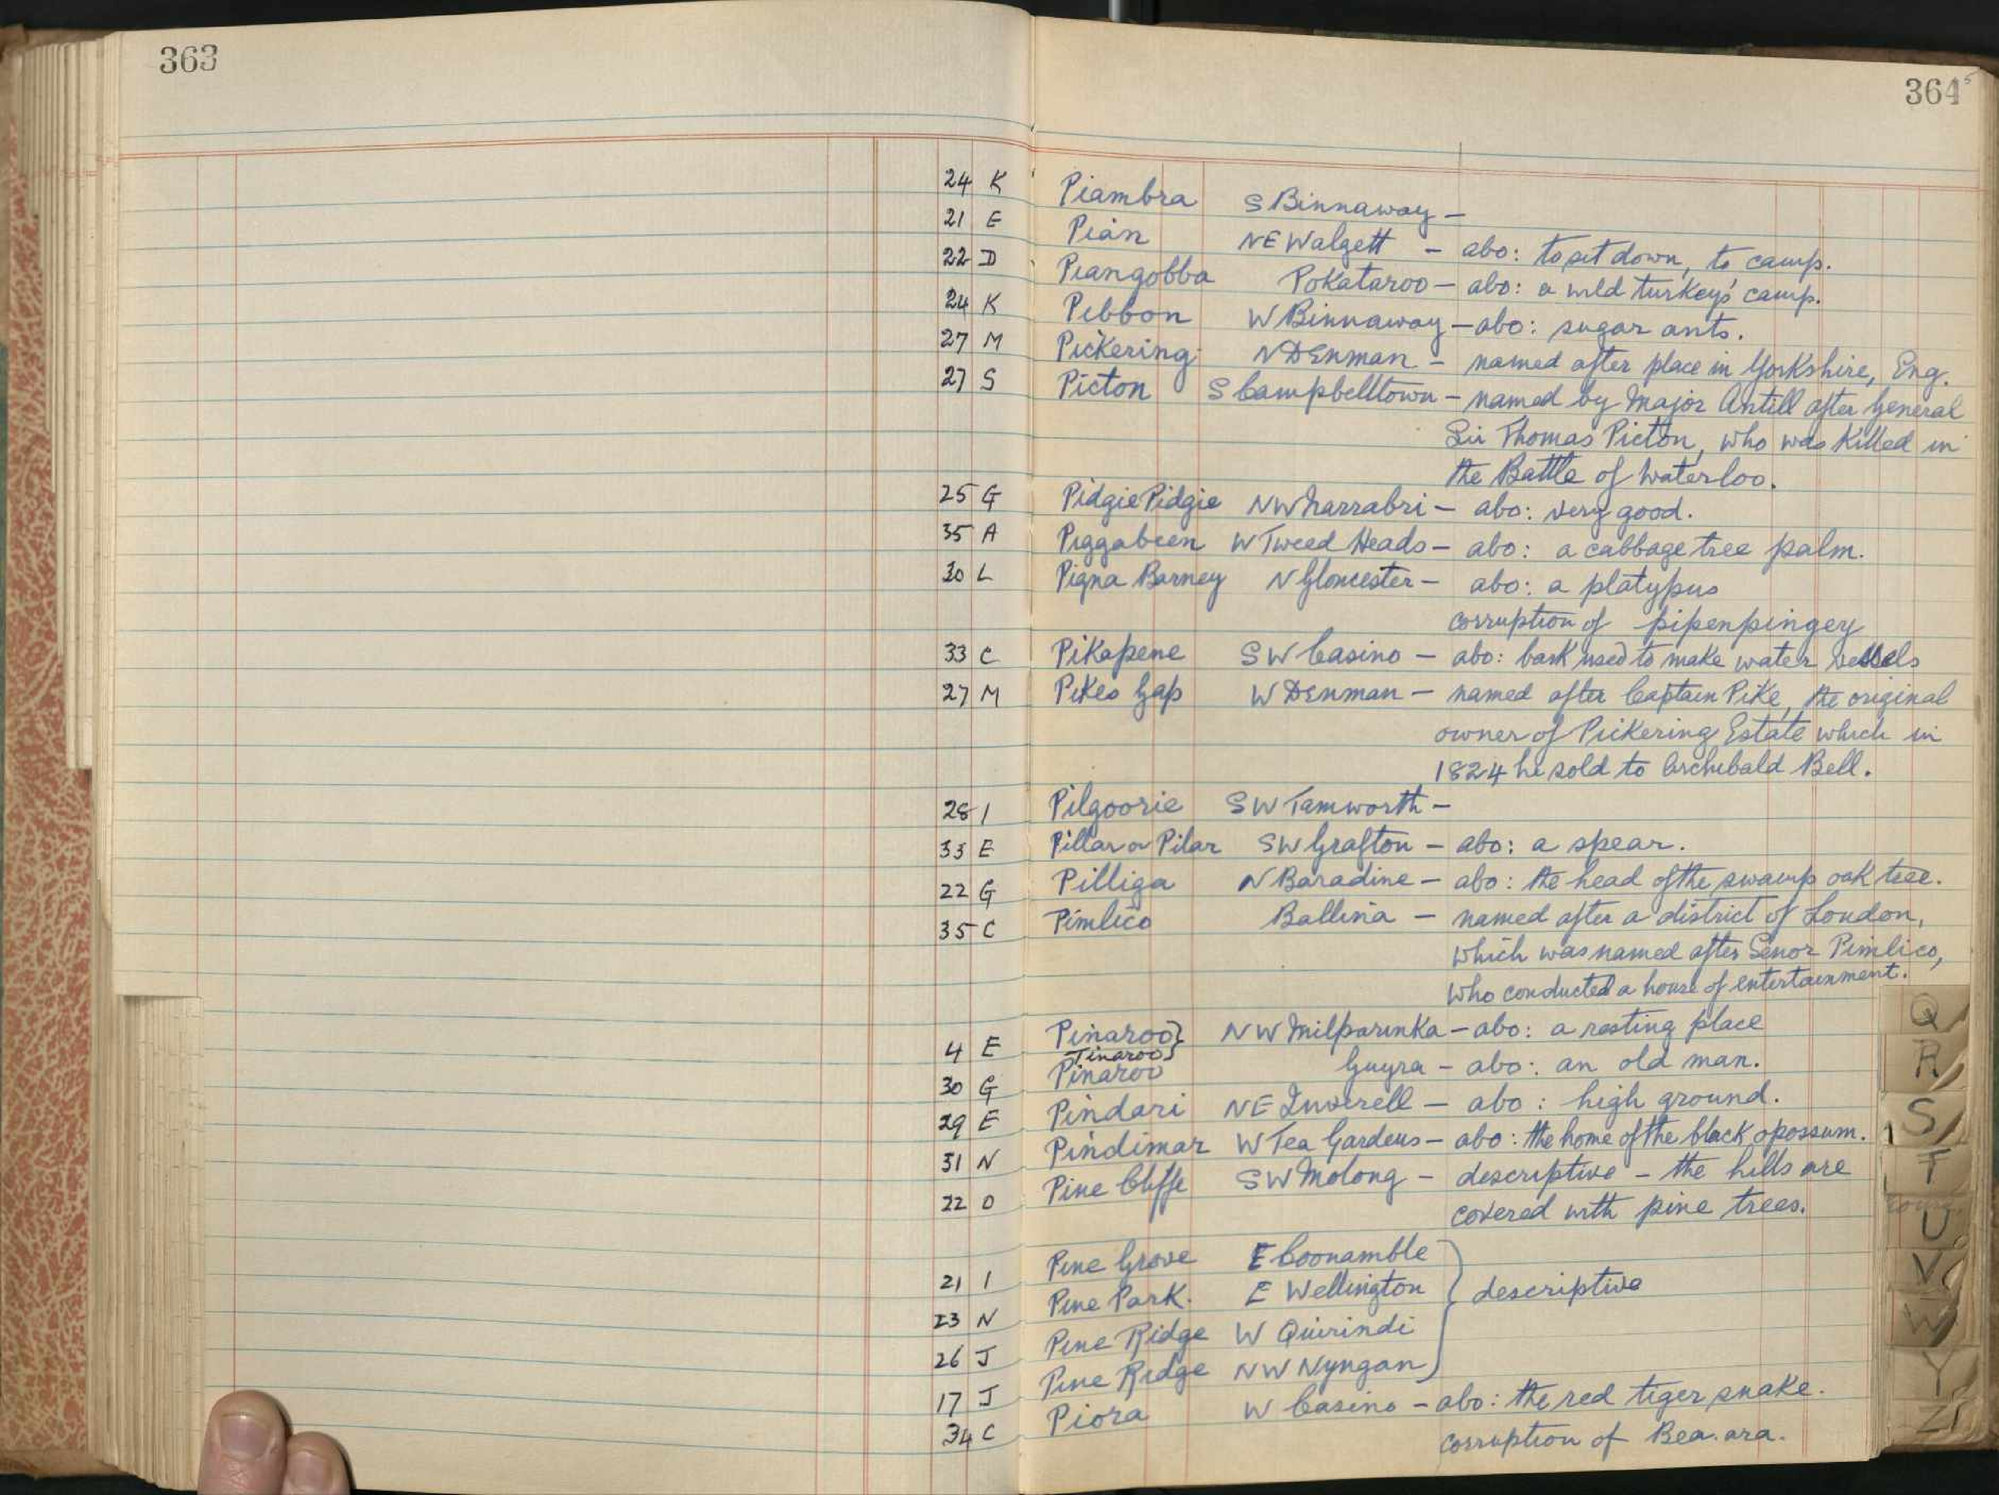 363
364 5
24 K Piambra S Binnaway –
21 E Pian NE Walgett – abo: to sit down, to camp.
22 D Piangobba Pokataroo – abo: a wild turkeys' camp.
24 K Pibbon W Binnaway – abo: sugar ants.
27 M Pickering N Denman – named after place in Yorkshire, Eng.
27 S Picton S Campbelltown – named by Major Antill after General
Sir Thomas Picton, who was killed in
the Battle of Waterloo.
25 G Pidgie Pidgie NW Narrabri – abo: very good.
35 A Piggabeen W Tweed Heads – abo: a cabbage tree palm.
30 L Pigna Barney N Gloucester – abo: a platypus
corruption of pipenpingey
33 C Pikapene SW Casino – abo: bark used to make water vessels
27 M Pikes Gap W Denman – named after Captain Pike, the original
owner of Pickering Estate which in
1824 he sold to Archibald Bell.
28 I Pilgoorie SW Tamworth –
33 E Pillar or Pilar SW Grafton – abo: a spear.
22 G Pilliga N Baradine – abo: the head of the swamp oak tree.
35 C Pimlico Ballina – named after a district of London,
which was named after Senor Pimlico,
who conducted a house of entertainment.
4 E Pinaroo } NW Milparinka – abo: a resting place
Tinaroo }
30 G Pinaroo Guyra – abo: an old man.
29 E Pindari NE Inverell – abo: high ground.
31 N Pindimar W Tea Gardens – abo: the home of the black opossum.
22 O Pine Cliffe SW Molong – descriptive – the hills are
covered with pine trees.
21 I Pine Grove E Coonamble
23 N Pine Park. E Wellington } descriptive
26 J Pine Ridge W Quirindi
17 J Pine Ridge NW Nyngan
34 C Piora W Casino – abo: the red tiger snake.
corruption of Bea.ara.
Q
R
S
T
U
V
W
Y
Z